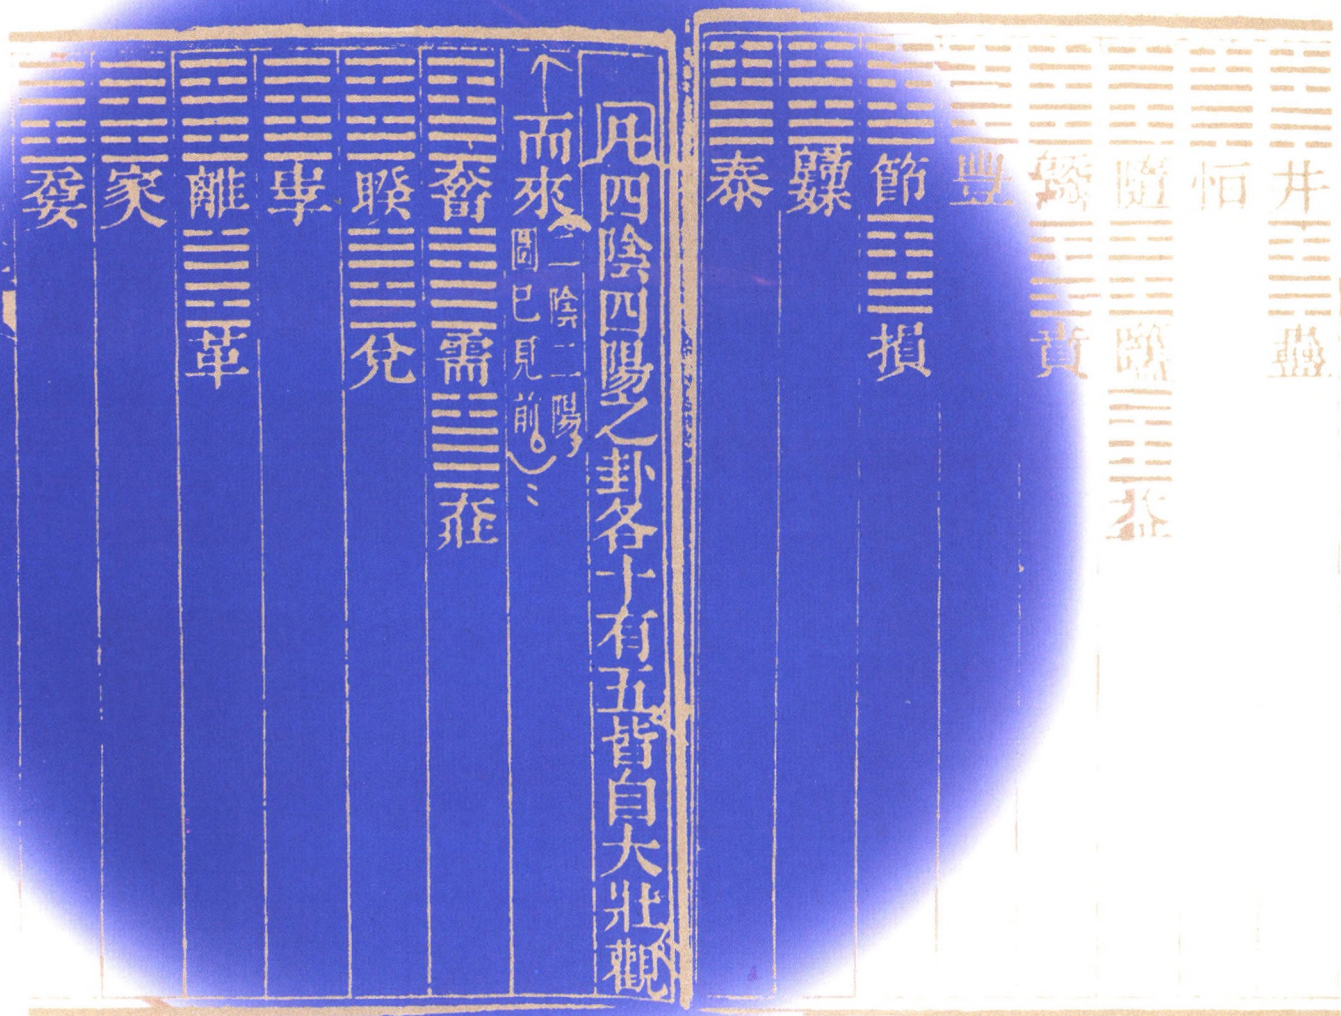 井 蠱
恒
隨 噬嗑 益
旣濟 賁
豐
節 損
歸妹
泰
凡四陰四陽之卦各十有五皆自大壯觀
而來二陰二陽圖已見前。
大畜 需 大壯
睽 兌
中孚
離 革
家人
无妄